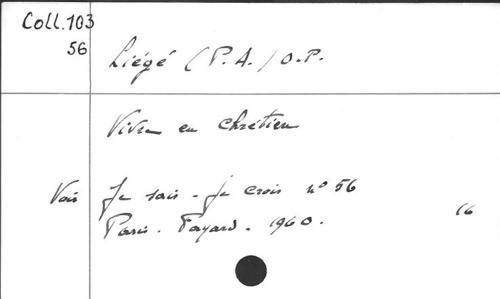 Coll. 103
56
Liégé (P. A.) O.P.
Vivre en chrétien
Voir Je sais - je crois n° 56
Paris. Fayard. 1960. 16